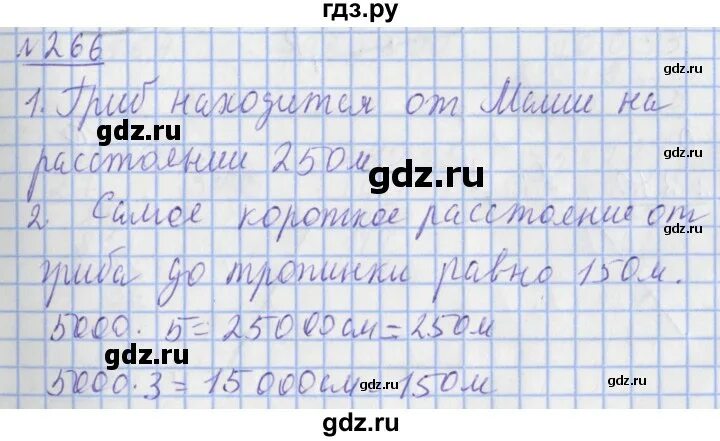 гдз.ру
№266
1. Гриб находится от Маши на
gdz.ru
gdz.ru
расстоянии 250м
gdz.ru
gdz.ru
2. Самое короткое расстояние от
гриба до тропинки равно 150м.
gdz.ru
gdz.ru
5000 · 5 = 25000см = 250м
5000 · 3 = 15000см = 150м
gdz.ru
gdz.ru
gdz.ru
gdz.ru